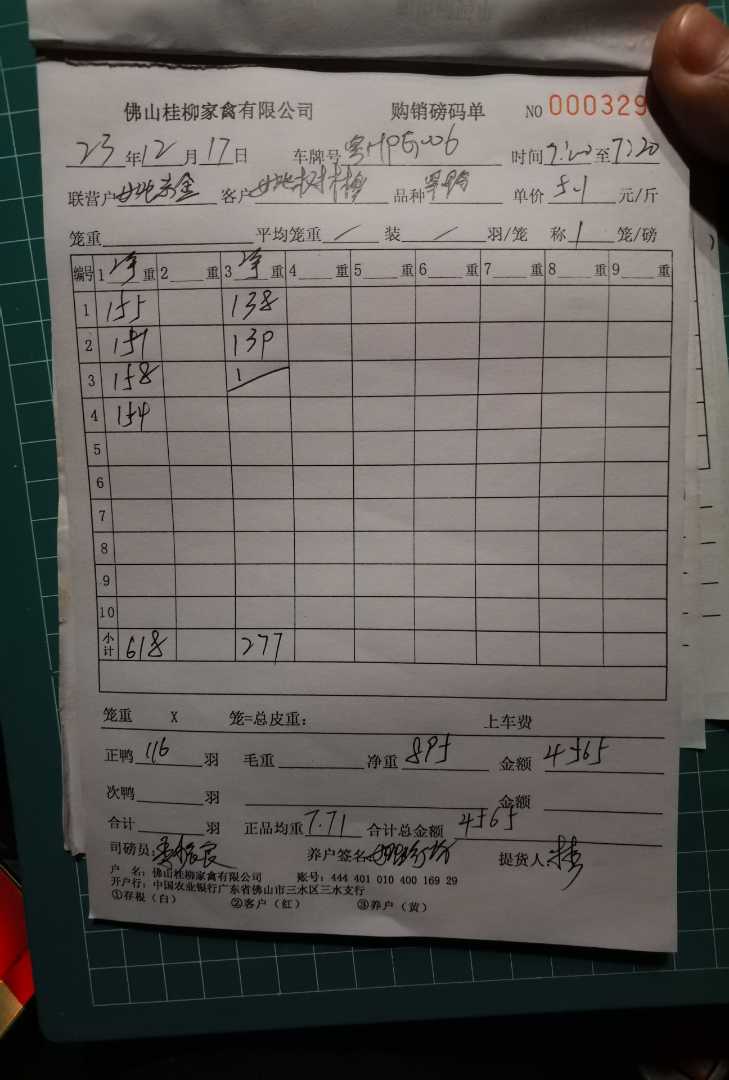 佛山桂柳家禽有限公司 购销磅码单 NO 000329
23年12月17日 车牌号 时间 至7:20
联营户 客户 品种 单价5.1元/斤
笼重 平均笼重 / 装 / 羽/笼 称 1 笼/磅
编号 1 净 重 2 重 3 净 重 4 重 5 重 6 重 7 重 8 重 9 重
1 155 138
2 151 139
3 158
4 154
5
6
7
8
9
10
小计 618 277
笼重 X 笼=总皮重: 上车费
正鸭 116 羽 毛重 净重 895 金额 4565
次鸭 羽 金额
合计 羽 正品均重 7.71 合计总金额 4565
司磅员: 养户签名 提货人:
户 名: 佛山桂柳家禽有限公司 账号: 444 401 010 400 169 29
开户行: 中国农业银行广东省佛山市三水区三水支行
①存根(白) ②客户(红) ③养户(黄)